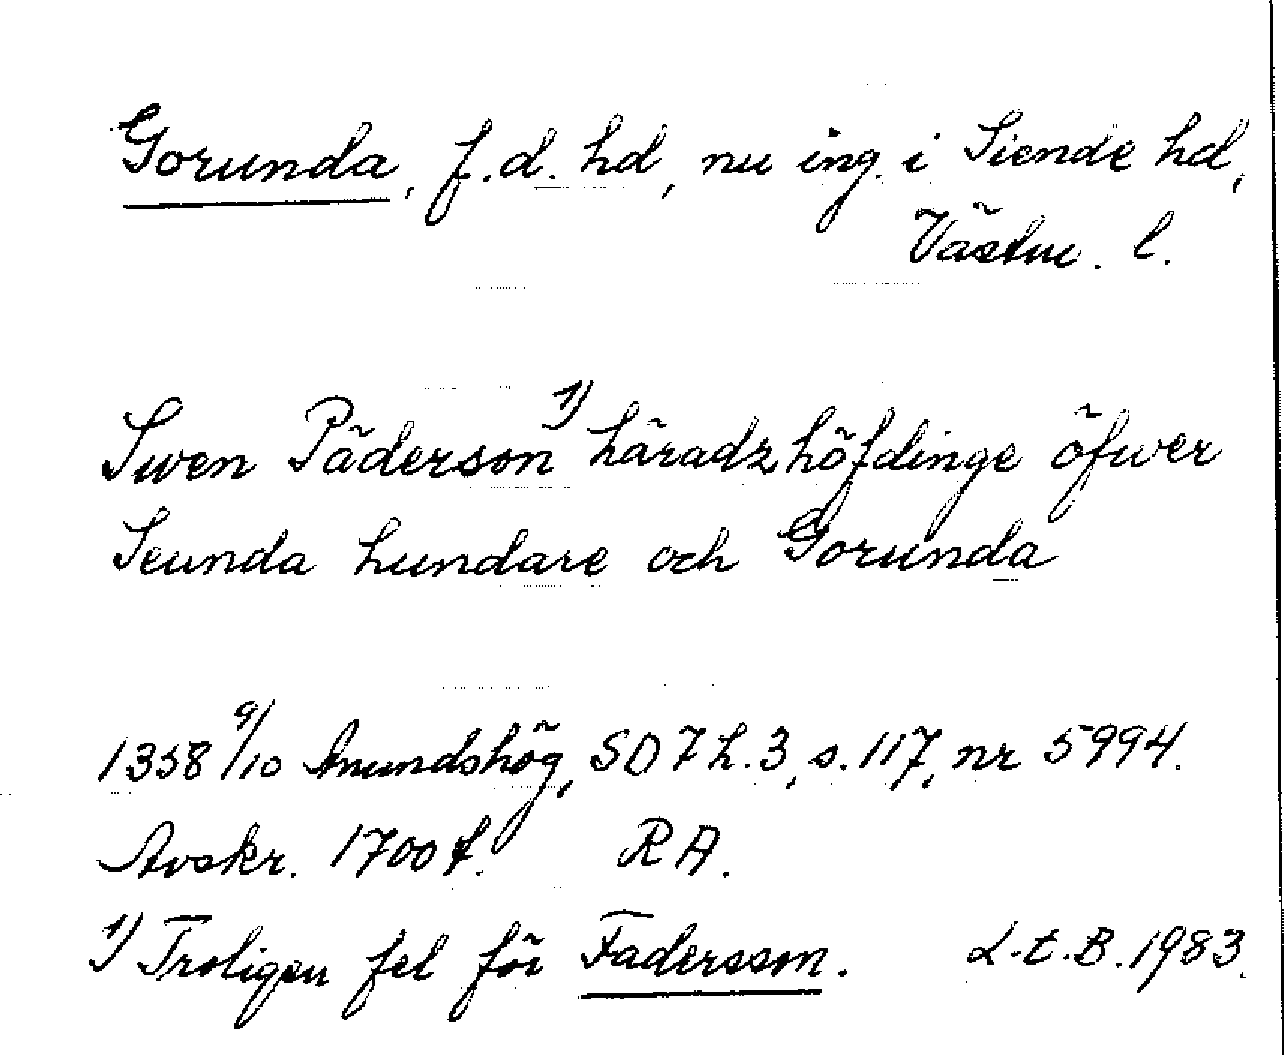 Gorunda, f.d. hd, nu ing. i Siende hd,
Västm. l.
Swen Päderson 1) häradzhöfdinge öfwer
Seunda hundare och Gorunda
1358 9/10 Anundshög, SD 7 h. 3, s. 117, nr 5994.
Avskr. 1700 t. RA.
1) Troligen fel för Fadersson. L.t.B. 1983.